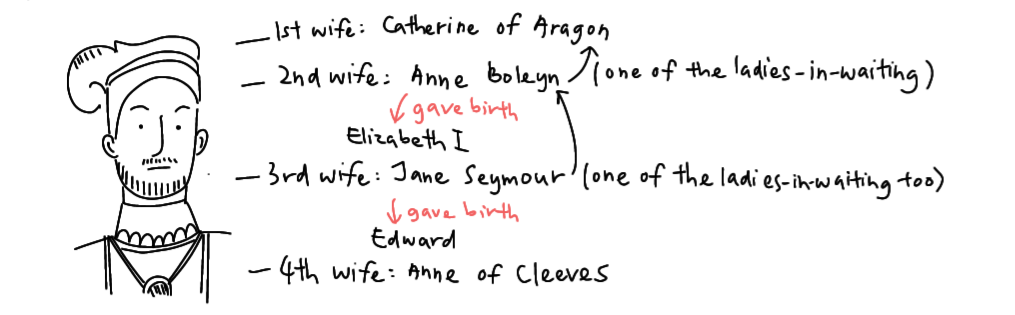 — 1st wife: Catherine of Aragon
— 2nd wife: Anne Boleyn (one of the ladies-in-waiting)
gave birth
Elizabeth I
— 3rd wife: Jane Seymour (one of the ladies-in-waiting too)
gave birth
Edward
— 4th wife: Anne of Cleeves